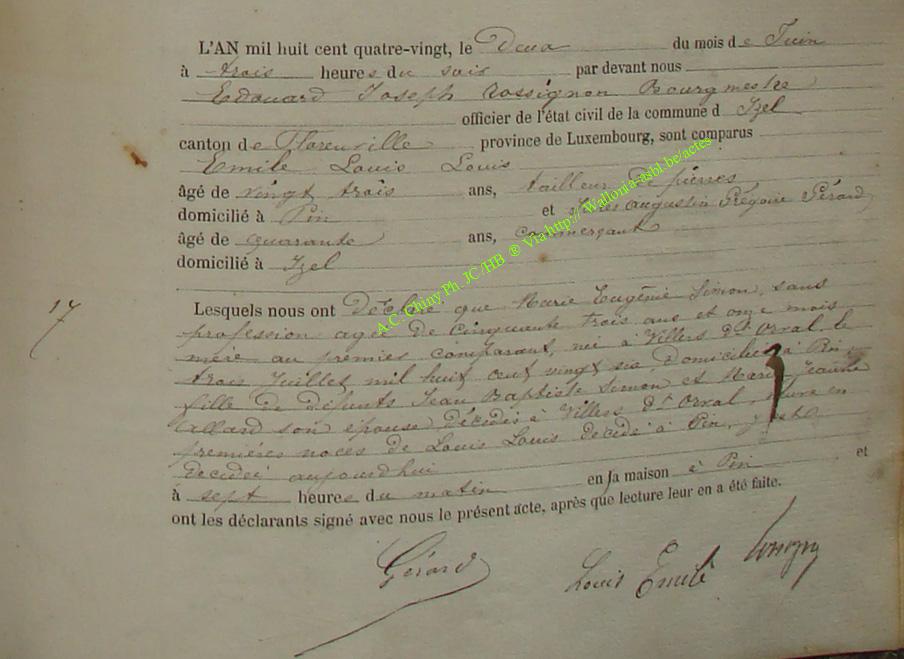 L'AN mil huit cent quatre-vingt, le Deux du mois de Juin
à trois heures du soir par devant nous
Edouard Joseph Rossignon Bourgmestre
officier de l'état civil de la commune d Izel
canton de Florenville province de Luxembourg, sont comparus
Emile Louis Louis
âgé de vingt trois ans, tailleur de pierres
domicilié à Pin et Jules augustin Grégoire Gérard
âgé de quarante ans, commerçant
domicilié à Izel
17
Lesquels nous ont Déclaré que Marie Eugénie Simon, sans
profession agée de Cinquante trois ans et onze mois
mère au premier comparant, née à Villers dt Orval le
trois Juillet mil huit cent vingt six, domiciliée à Pin
fille de difunts Jean Baptiste Simon et Marie Jeanne
Allard son épouse décédés à Villers dt Orval, veuve en
premières noces de Louis Louis décédé à Pin, est
décédée aujourd'hui
à sept heures du matin en sa maison à Pin et
ont les déclarants signé avec nous le présent acte, après que lecture leur en a été faite.
Gérard
Louis Emile
A.C. Chiny Ph. JC/HB ® Via http://Wallonia-asbl.be/actes